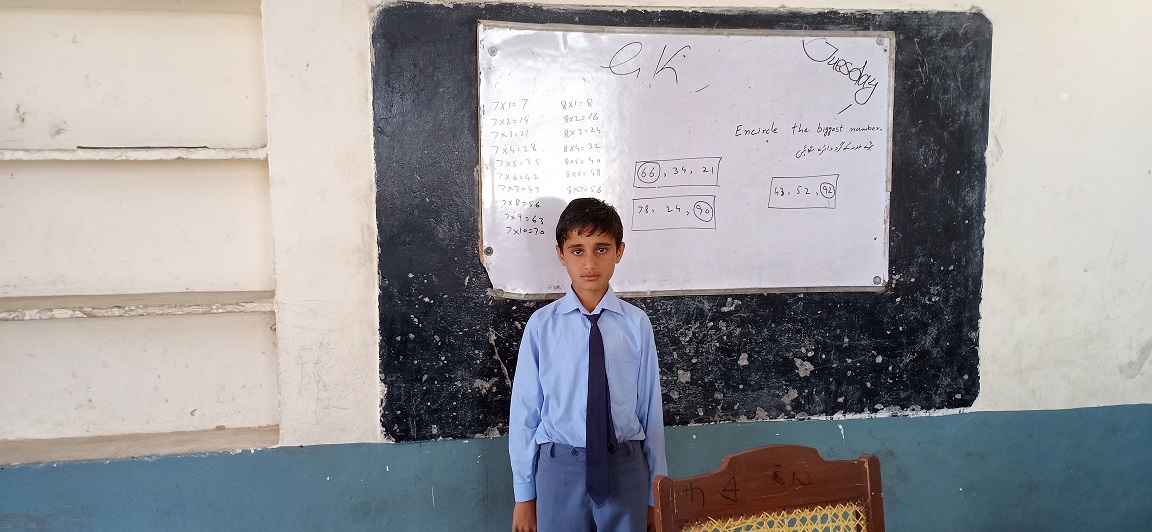 GK
Tuesday
7x1=7
7x2=14
7x3=21
7x4=28
7x5=35
7x6=42
7x7=49
7x8=56
7x9=63
7x10=70
8x1=8
8x2=16
8x3=24
8x4=32
8x5=40
8x6=48
8x7=56
Encircle the biggest number.
66, 34, 21
78, 24, 90
43, 52, 92